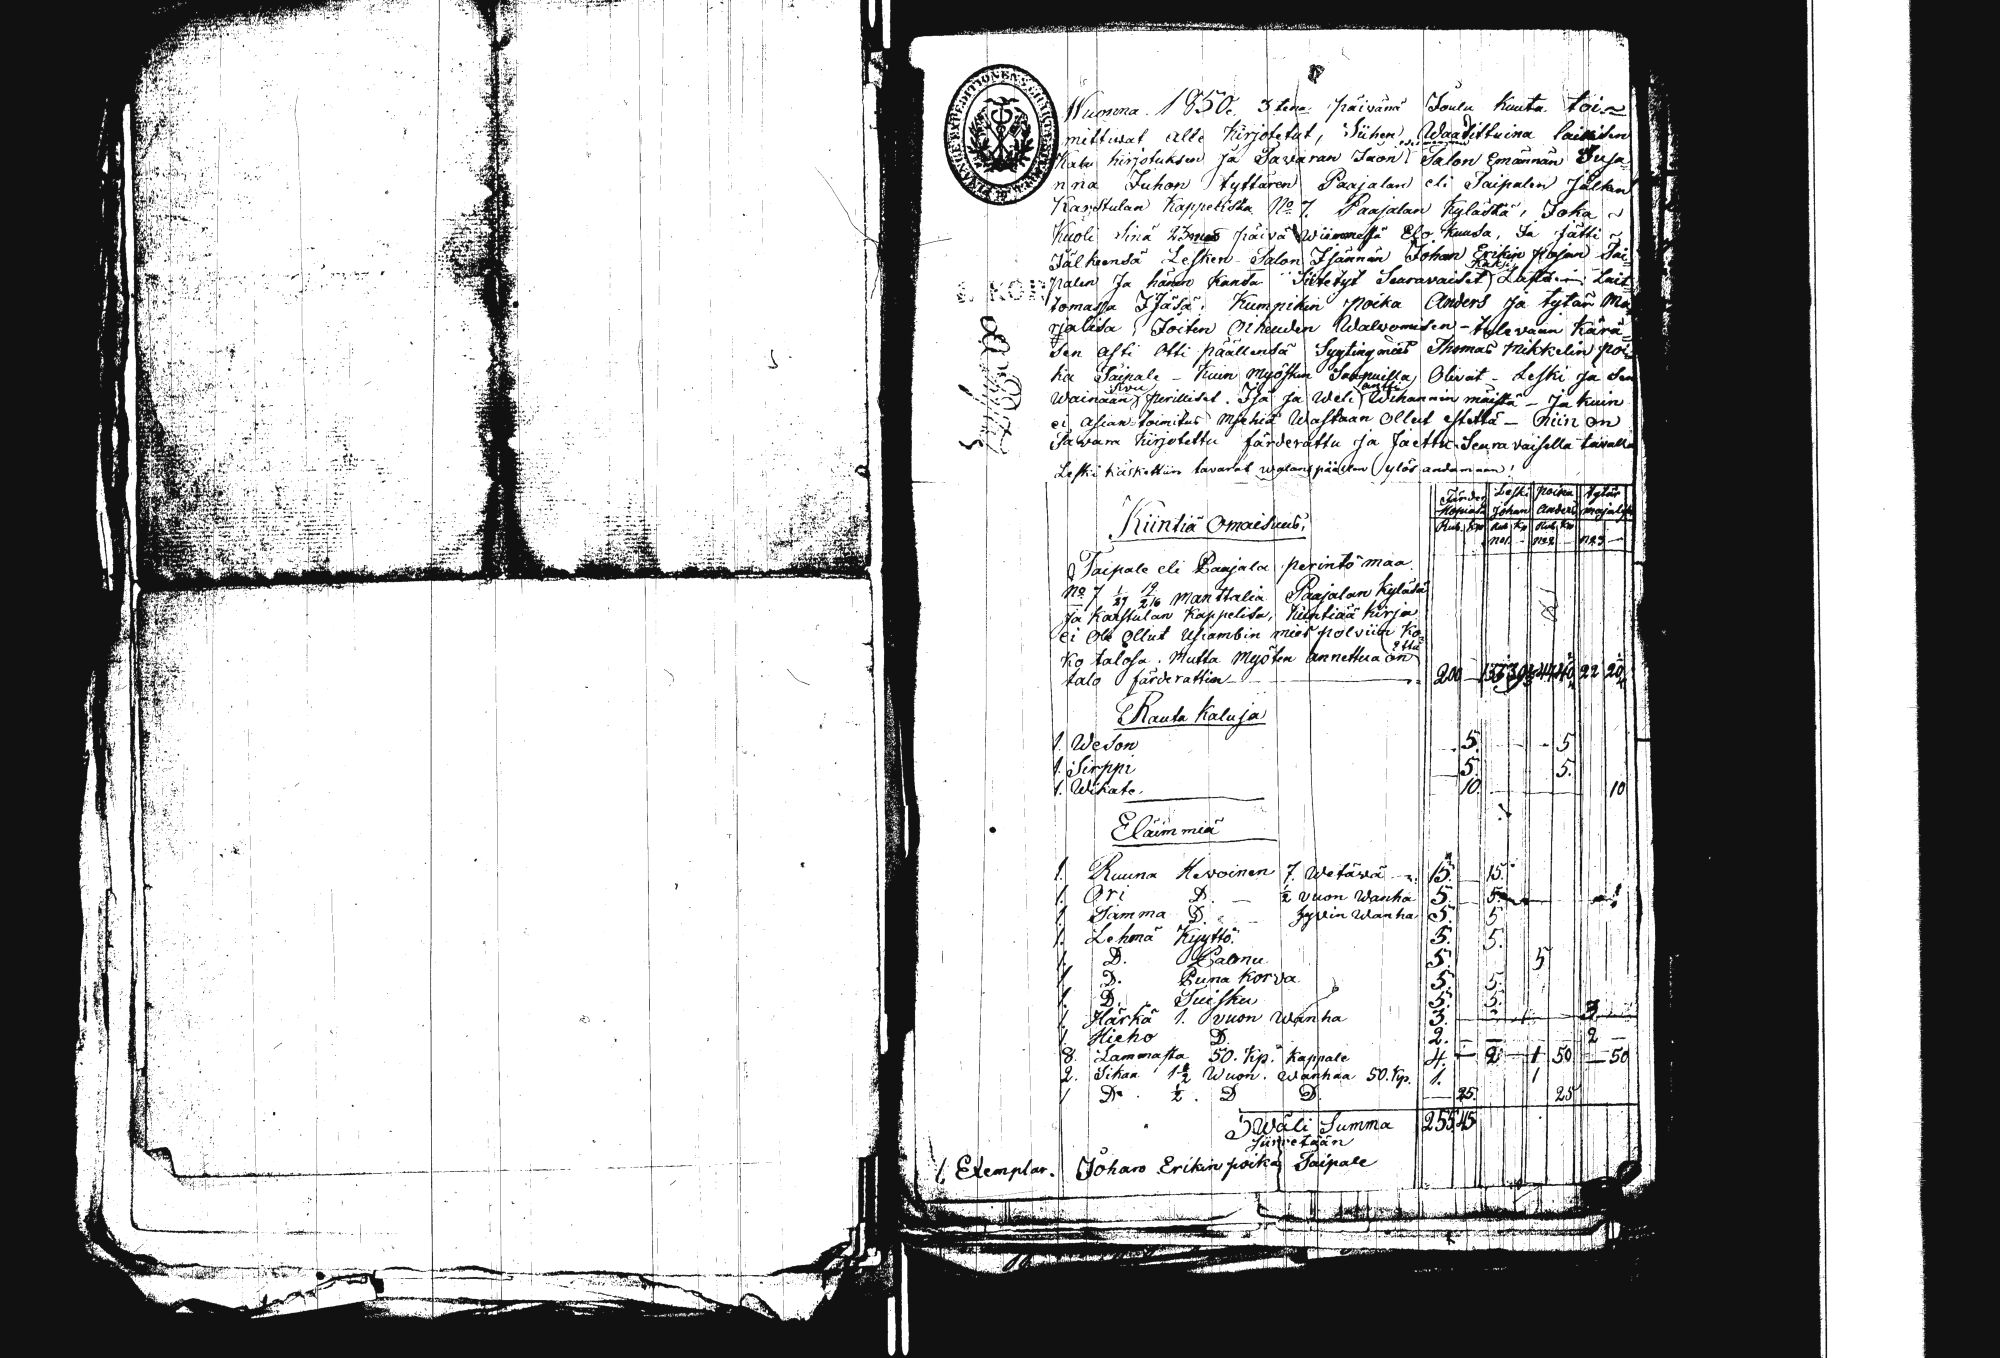 Wuonna 1850. 3 tena päivänä Joulu kuuta toi-
mittivat alle kirjotetut, Siihen Waadittuina laillisen
kalu kirjotuksen ja Tavaran Jaon Talon Emännän Susa-
nna Juhon tyttären Paajalan eli Taipalen Jälken
Karstulan Kappelista No 7. Paajalan kylästä, Joka
kuoli sinä 23 päivä Wiimmestä Elo kuusa, Ja Jätti
Jälkeensä Lesken Talon Isännän Johan Erikin pojan Tai-
palen Ja hänen kansa Siitetyt Seuravaiset Kaksi Lasta Lait-
tomassa Ijäsä, Kumpikin poika Anders Ja tytär Ma-
rjalisa, Joiten Oikeuden Walvomisen tulevaan Kärä-
sen asti Otti päällensä Sygtingmies Thomas Mikkelin poi-
ka Taipale – kuin myöskin Saapuilla Olivat – Leski ja sen
Wainaan perilliset. Isä ja Weli Wihannin mäistä – Ja kuin
ei asian toimitus miehiä Wastaan Ollut estettä – niin on
Tavara kirjotettu färderättu ja Jaettu Seuravaisella tavalla
Leski käskettiin tavarat walans päällen ylös andamaan,
Färder Leski poika tytär
Kopiata Johan Anders majalisa
Rub. Kp Rub Kp Rub Kp
No1. No2. No3
Kiintiä Omaisuus,
Taipale eli Paajala perintö maa
No 7 1/27 19/216 manttalia Paajalan kyläsä
Ja Karstulan Kappelisa, kiintiää kirja
ei Ole Ollut Usiambin mies polviin Ko-
ko talosa. Mutta Myöten annettua on
talo färderattin 200 22 20
Rauta Kaluja
1. Weson 5. 5
1. Sirppi 5. 5.
1. Wikate. 10. 10
Eläimmiä
1. Ruuna Hevoinen 7. Wetävä 15. 15.
1. Ori D. 1/2 vuon Wanha 5. 5.
1. Tamma D. Hyvin Wanha 5. 5
1. Lehmä Kyyttö. 5. 5.
1. D. 5. 5
1. D. Puna korva 5. 5.
1. D. Tuisku 5. 5.
1. Härkä 1. vuon Wanha 3. 3
1 Hieho D. 2. 2
8. Lammasta 50. Kp. kappale 4. 2 1 50 50
2. Sikaa 1 1/2 Wuon. Wanhaa 50. Kp. 1. 1
1 D. 1/2. D D. 25. 25
Wäli Summa 255 45
Siirretään
1. Exemplar. Johan Erikin poika Taipale